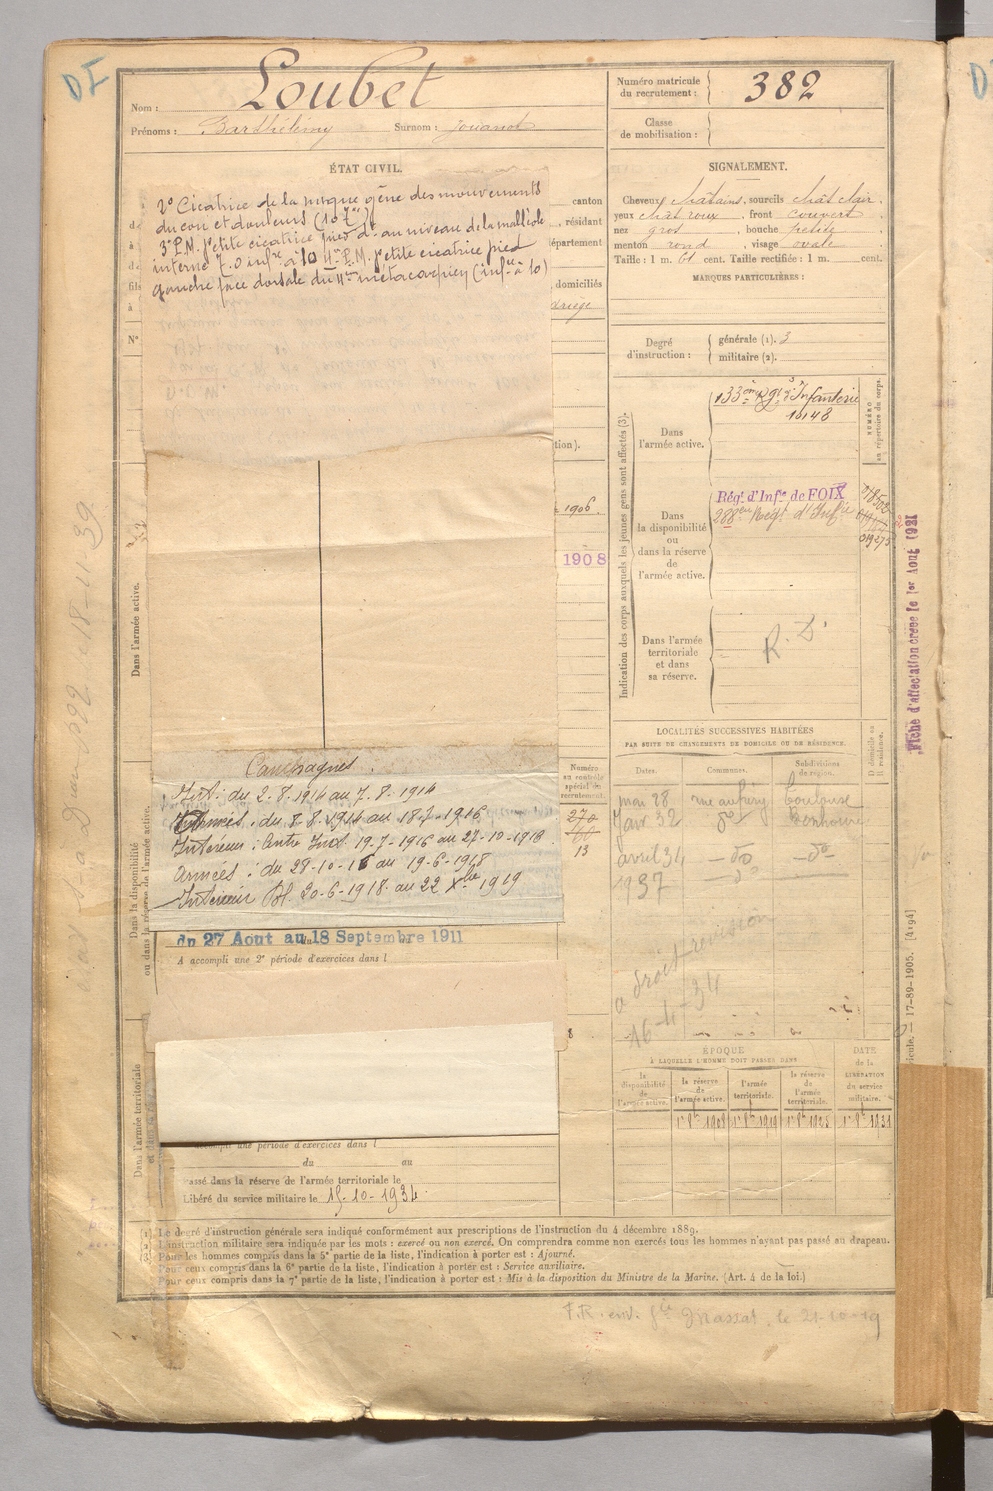 DI
Nom : Loubet
Prénoms : Barthélémy Surnom : Jouanot
Numéro matricule du recrutement : 382
Classe de mobilisation :
ÉTAT CIVIL.
2° Cicatrice de la nuque gêne des mouvements
du cou et douleurs
3° P.M. petite cicatrice pied dt au niveau de la malléole
interne 7.0 infre à 10 4° P.M. petite cicatrice pied
gauche face dorsale du 4e métacarpien (infre à 10)
canton
, résidant
département
domiciliés
N°
tion).
1906.
1908
SIGNALEMENT.
Cheveux châtains, sourcils chât clair,
yeux chât roux, front couvert,
nez gros, bouche petite,
menton rond, visage ovale
Taille : 1 m. 61 cent. Taille rectifiée : 1 m. cent.
MARQUES PARTICULIÈRES :
Degré d'instruction :
générale (1). 3
militaire (2).
Indication des corps auxquels les jeunes gens sont affectés (3).
NUMÉRO au répertoire du corps.
Dans l'armée active.
133ème Rgt d'Infanterie
10148
Dans la disponibilité ou dans la réserve de l'armée active.
Régt d'Infie de FOIX
288e Régt d'Infie
Dans l'armée territoriale et dans sa réserve.
R. D
Dans l'armée active.
Fiche d'affectation créée le 1er Aout 1921
LOCALITÉS SUCCESSIVES HABITÉES
PAR SUITE DE CHANGEMENTS DE DOMICILE OU DE RÉSIDENCE.
D domicile ou R résidence.
Dates. Communes. Subdivisions de région.
mai 28 Toulouse
Janv 32 do
avril 34 — do — do
137 — do
a droit révision
16-4-34
Numéro au contrôle spécial du recrutement.
270
13
Campagnes.
Int : du 2.8.1914 au 7.8.1914
Armées : du 8.8.1914 au 18.7.1916
Intérieur : 19.7.1916 au 27.10.1916
Armées : du 28.10.16 au 19.6.1918
Intérieur Bl. 20.6.1918 au 22 Xbre 1919
Dans la disponibilité ou dans la réserve de l'armée active.
du 27 Aout au 18 Septembre 1911
A accompli une 2e période d'exercices dans l
Dans l'armée territoriale
accompli une période d'exercices dans l
du au
assé dans la réserve de l'armée territoriale le
Libéré du service militaire le 15-10-1934
ÉPOQUE
À LAQUELLE L'HOMME DOIT PASSER DANS
la disponibilité de l'armée active.
la réserve de l'armée active.
l'armée territoriale.
la réserve de l'armée territoriale.
DATE de la LIBÉRATION du service militaire.
1r 8b 1908 1r 8b 1919 1r 8b 1925 1r 8b 1931
17-89-1905. [4194]
(1) Le degré d'instruction générale sera indiqué conformément aux prescriptions de l'instruction du 4 décembre 1889.
(2) L'instruction militaire sera indiquée par les mots : exercé ou non exercé. On comprendra comme non exercés tous les hommes n'ayant pas passé au drapeau.
(3) Pour les hommes compris dans la 5e partie de la liste, l'indication à porter est : Ajourné.
Pour ceux compris dans la 6e partie de la liste, l'indication à porter est : Service auxiliaire.
Pour ceux compris dans la 7e partie de la liste, l'indication à porter est : Mis à la disposition du Ministre de la Marine. (Art. 4 de la loi.)
F.R. env. Gie Massat, le 21-10-19